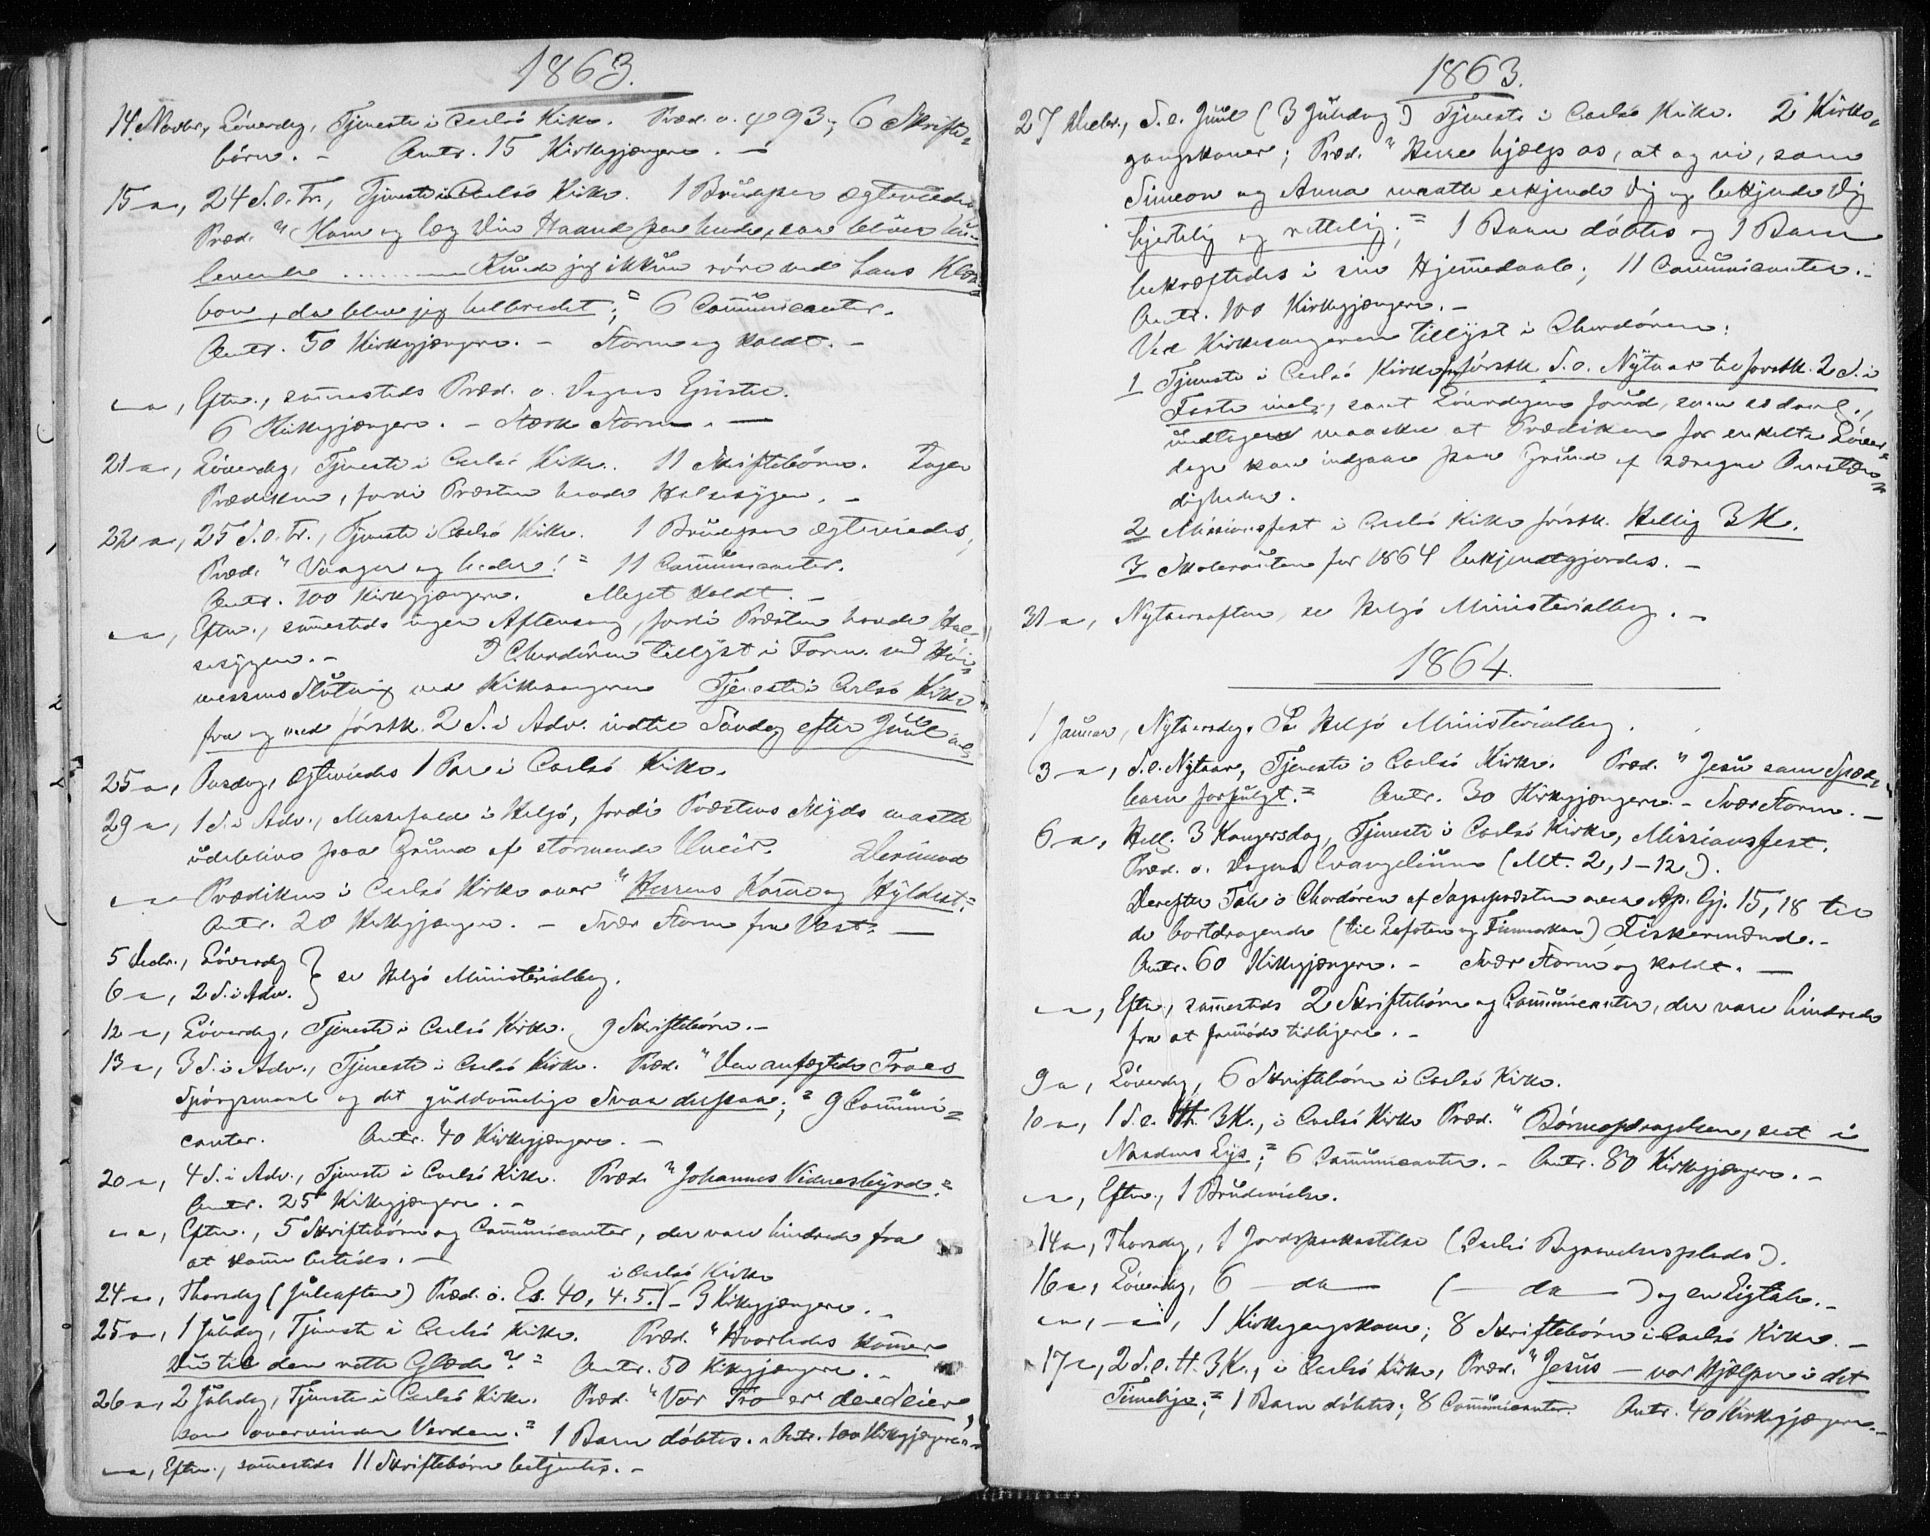 1863.
14 Novbr., Löverdag, Tjeneste i Carlsö Kirke. Præd. o. ψ 93; 6 Skrifte-
börn. - Antr. 15 Kirkegjængere. -
15 -, 24 S. e. Tr., Tjeneste i Carlsö Kirke. 1 Brüdepar ægteviedes.
Præd. "Kom og læg Din Haand paa hende, saa bliver hün
levende ........ Künde jeg ikkün röre ved hans Klæde-
bon, da blev jeg helbredet;" 6 Com̅ünicanter.
Antr. 50 Kirkegjængere. - Storm og koldt. -
- , Eftm., sam̅esteds Præd. o. Dagens Epistel.
6 Kirkegjængere. - Stærk Storm. -
21 -, Löverdag, Tjeneste i Carlsö Kirke. 11 Skriftebörn. Ingen
Prædiken, fordi Præsten havde Halsesygen. -
22 -, 25 S. e. Tr., Tjeneste i Carlsö Kirke. 1 Brüdepar ægteviedes;
Præd. "Vaager og beder!" 11 Com̅ünicanter.
Antr. 100 Kirkegjængere. Meget koldt. -
- , Eftm., sam̅esteds ingen Aftensang, fordi Præsten havde Hal-
sesygen. - I Chordören tillyst i Form. ved Höi-
messens Slütning ved Kirkesangeren Tjeneste i Carlsö Kirke
fra og med förstk. 2 S. i Adv. indtil Söndag efter Jüül incl.
25 -, Onsdag, ægteviedes 1 Par i Carlsö Kirke.
29 -, 1 S. i Adv., Messefald i Helgö, fordi Præstens Skyds maatte
üdeblive paa Gründ af stormende Uveir. Derimod
- Prædiken i Carlsö Kirke over "Herrens Kom̅e og Hyldest."
Antr. 20 Kirkegjængere. - Svær Storm fra Vest. -
5 Decbr., Löverdag } se Helgö Ministerialbog.
6 -, 2 S. i Adv.
12 -, Löverdag, Tjeneste i Carlsö Kirke. 9 Skriftebörn. -
13 -, 3 S. i Adv., Tjeneste i Carlsö Kirke. Præd. "Den anfægtede Troes
Spörgsmaal og det güddom̅elige Svar derpaa;" 9 Com̅üni-
canter. Antr. 40 Kirkegjængere. -
20 -, 4 S. i Adv., Tjeneste i Carlsö Kirke. Præd. "Johannes Vidnesbyrd."
Antr. 25 Kirkegjængere. -
- , Eftm., 5 Skriftebörn og Com̅ünicanter, der vare hindrede fra
at kom̅e betids. -
24 -, Thorsdag (Jüleaften) Præd. o. Es. 40, 4. 5. i Carlsö Kirke - 9 Kirkegjængere. -
25 -, 1 Jüledag, Tjeneste i Carlsö Kirke. Præd. "Hvorledes kom̅er
Dü til den rette Glæde?" Antr. 50 Kirkegjængere. -
26 -, 2 Jüledag, Tjeneste i Carlsö Kirke. Præd. "Vor Tro er den Seier,
som overvinder Verden." 1 Barn döbtes. - Antr. 100 Kirkegjængere. -
- , Eftm., sam̅esteds 11 Skriftebörn betjentes. -
1863.
27 Decbr., S. e. Jüül (3 Jüledag) Tjeneste i Carlsö Kirke. 2 Kirke-
gangskoner; Præd. "Herre hjælp os, at og vi, som
Simeon og Anna maatte erkjende Dig og bekjende Dig
hjertelig og rettelig;" 1 Barn döbtes og 1 Barn
bekræftedes i sin Hjem̅edaab; 11 Com̅ünicanter. -
Antr. 100 Kirkegjængere. -
Ved Kirkesangeren tillyst i Chordören:
1 Tjeneste i Carlsö Kirke fra förstk. S. e. Nytaar til förstk. 2 S. i
Faste incl., samt Löverdagene forud, som sedvanl.,
undtagen maaskee at Prædiken for enkelte Löver-
dage kan indgaae paa Gründ af særegne Omstæn-
digheder.
2 Missionsfest i Carlsö Kirke förstk. Hellig 3 K.
3 Skoleroüten for 1864 bekjendtgjordes. -
31 -, Nytaarsaften, se Helgö Ministerialbog. -
1864.
1 Januar, Nytaarsdag. Se Helgö Ministerialbog.
3 -, S. e. Nytaar, Tjeneste i Carlsö Kirke. Præd. "Jesu som Spæd-
barn forfülgt." Antr. 30 Kirkegjængere. - Svær Storm. -
6 -, Hell. 3 Kongersdag, Tjeneste i Carlsö Kirke, Missionsfest.
Præd. o. Dagens Evangeliüm (Mt. 2, 1-12).
Derefter Tale i Chordören af Sognepræsten over Ap. Gj. 15, 18 til
de bortdragende (til Lofoten og Finmarken) Fiskermænd. -
Antr. 60 Kirkegjængere. - Svær Storm og koldt. -
- , Eftm., sam̅esteds 2 Skriftebörn og Com̅ünicanter, der vare hindrede
fra at fremmöde tidligere. -
9 -, Löverdag, 6 Skriftebörn i Carlsö Kirke.
10 -, 1 S. e. H. 3 K., i Carlsö Kirke Præd. "Börneopdragelsen, seet i
Naadens Lys;" 6 Com̅ünicanter. - Antr. 80 Kirkegjængere. -
- , Eftm., 1 Brüdevielse.
14 -, Thorsdag, 1 Jordspaakastelse (Carlsö Begravelsesplads).
16 -, Löverdag, 6 - do - ( - do - ) og en Ligtale. -
- , - , 1 Kirkegangskone; 8 Skriftebörn i Carlsö Kirke. -
17 -, 2 S. e. H. 3 K., i Carlsö Kirke, Præd. "Jesüs - vor Hjælper i det
Timelige;" 1 Barn döbtes; 8 Com̅ünicanter. Antr. 40 Kirkegjængere. -